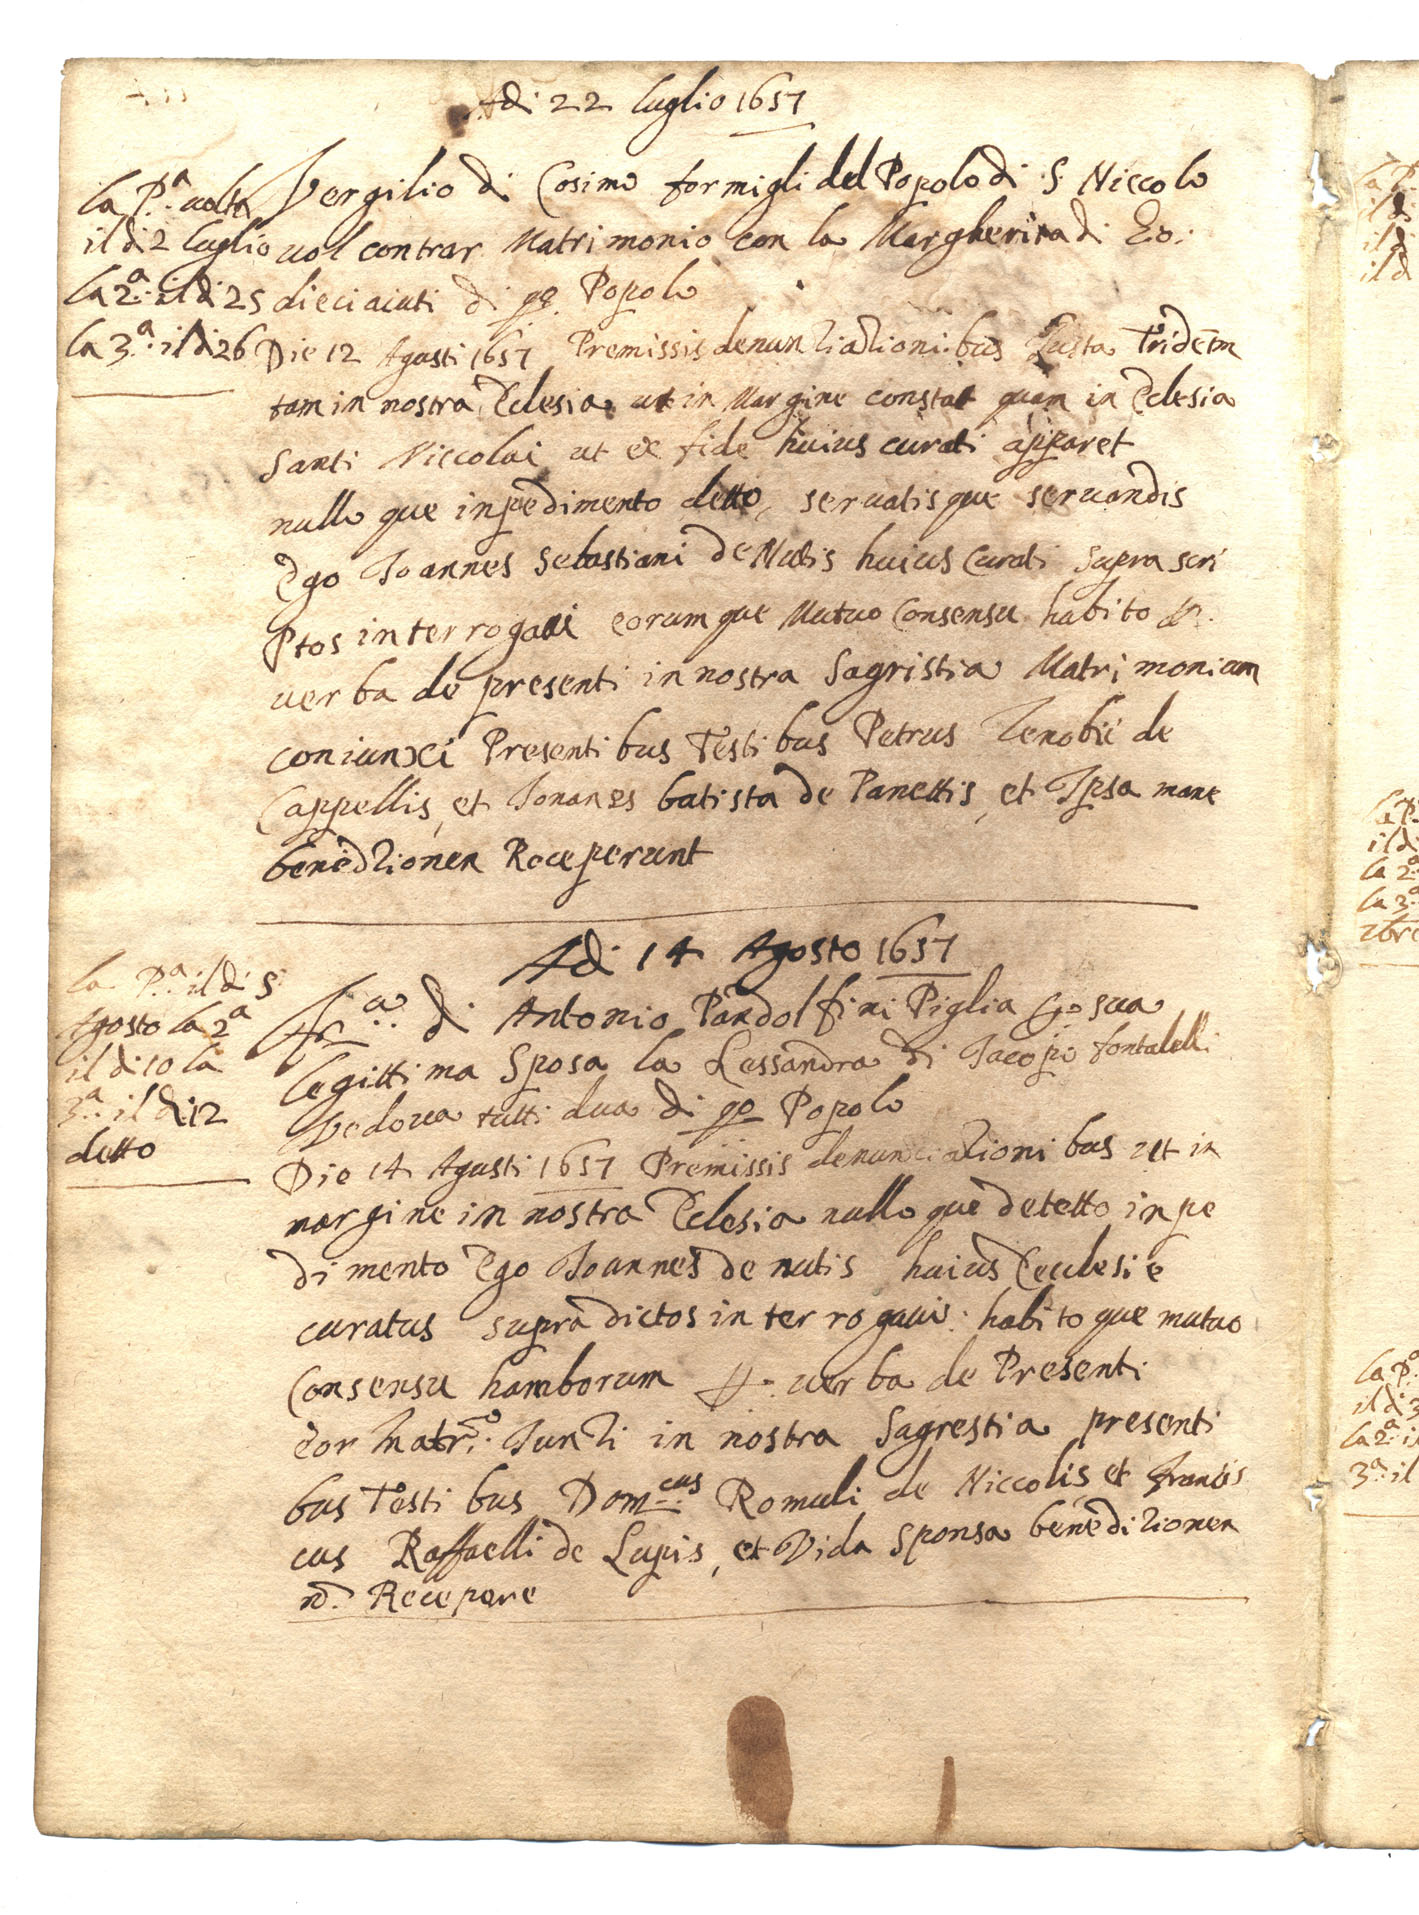 Adi 22 luglio 1657
la P.a uolta
il di 2 luglio
la 2.a il di 25
la 3.a il di 26
Vergilio di Cosimo formigli del Popolo di S Niccolo
uol contrar Matrimonio con la Margherita di
dieciaiuti di qo Popolo
Die 12 Agusti 1657 Premissis denunziationibus Justa
tam in nostra Eclesia ut in Margine constat quam in Eclesia
Santi Niccolai ut ex fide huius curati apparet
nullo que inpedimento detto, seruatis que seruandis
Ego Joannes Sebastiani de Nutis huius Curati supra scri
ptos interrogaui eorum que Mutuo Consensu habito
uerba de presenti in nostra Sagristia Matrimonium
coniunxi Presentibus Testibus Petrus Zenobii de
Cappellis, et Joannes batista de Panettis, et Ipsa mane
Receperunt
Adi 14 Agosto 1657
la P.a il di 5
Agosto la 2a
il di 10 la
3.a il di 12
detto
di Antonio Pandolfini Piglia sua
legittima Sposa la Lessandra di Jacopo
Vedoua tutti dua di qo Popolo
Die 14 Agusti 1657 Premissis denunciationibus ut in
margine in nostra Eclesia nullo que detetto inpe
dimento Ego Joannes de nutis huius Ecclesie
curatus supra dictos interrogauis: habito que mutuo
Consensu hamborum uerba de Presenti
in nostra Sagrestia presenti
bus Testibus Dom.cus Romuli de Niccolis et Francis
cus Raffaelli de Lupis, et Vida Sponsa
Recepere